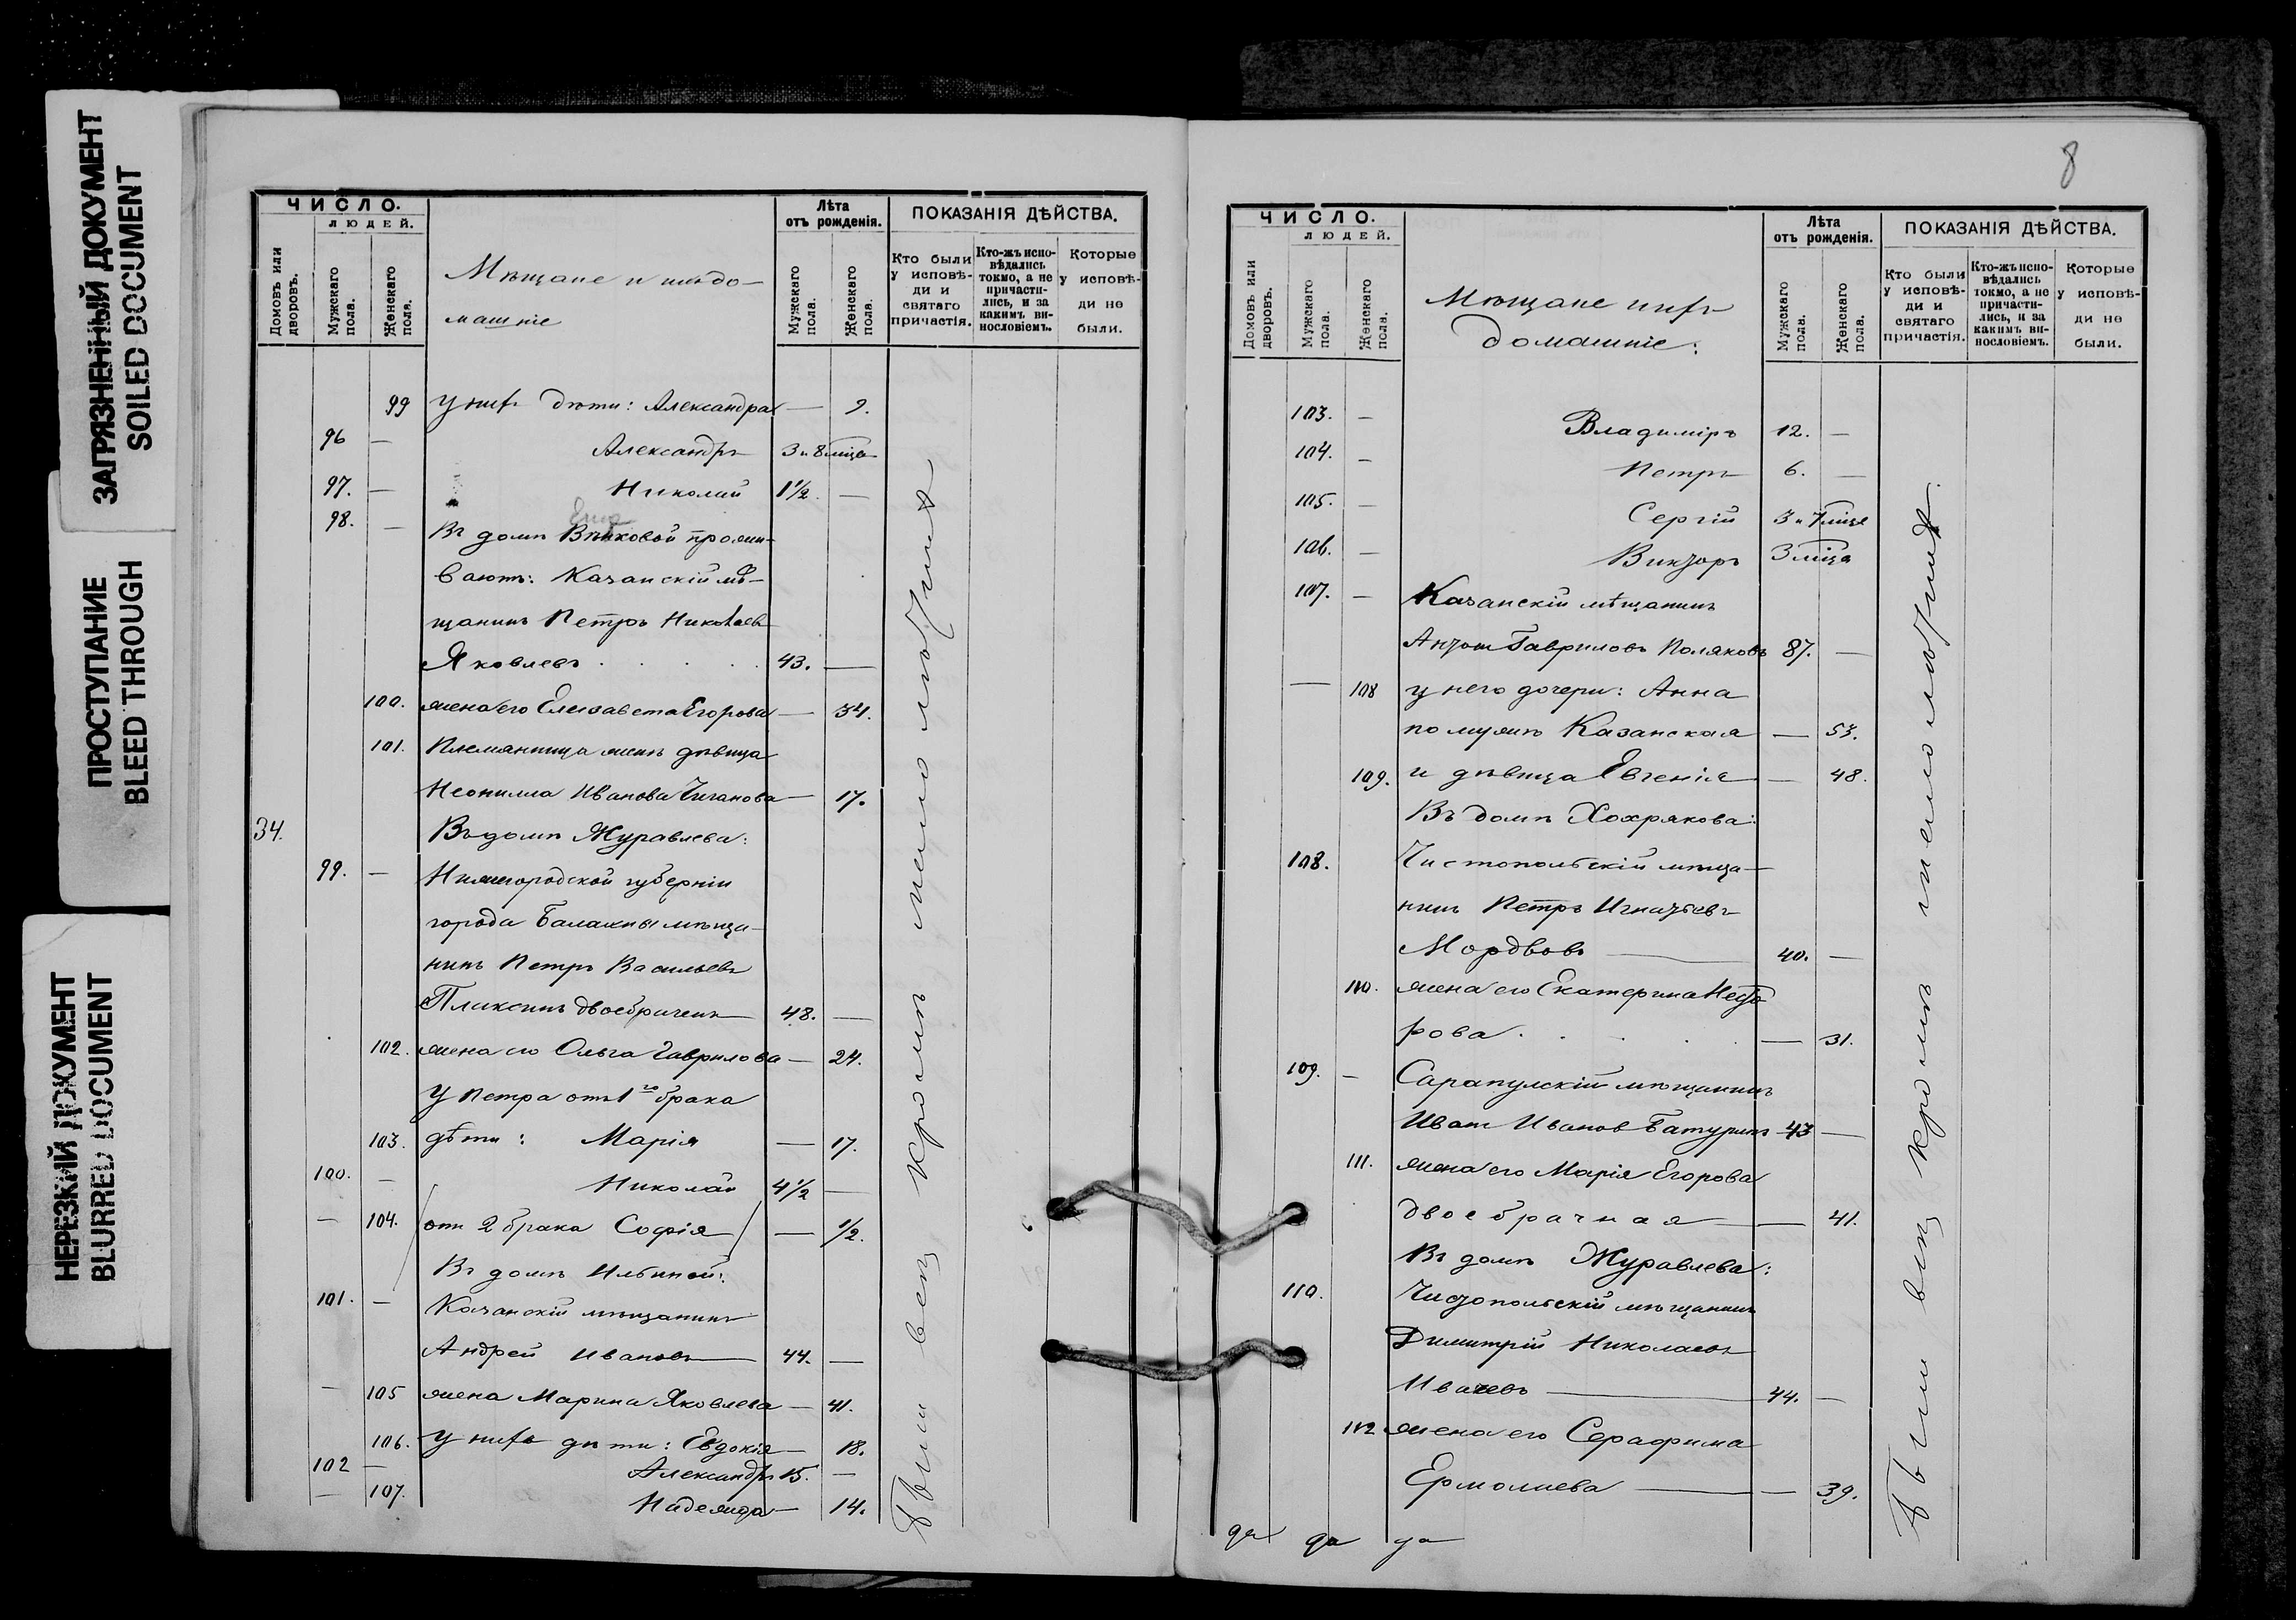 ЗАГРЯЗНЕННЫЙ ДОКУМЕНТ
SOILED DOCUMENT
ПРОСТУПАНИЕ
BLEED THROUGH
НЕРЕЗКИЙ ДОКУМЕНТ
BLURRED DOCUMENT
ЧИСЛО.
ЛЮДЕЙ.
Домовъ или дворовъ.
Мужскаго пола.
Женскаго пола.
Мѣщане и ихъ до-
машніе
Лѣта
отъ рожденія.
Мужскаго пола.
Женскаго пола.
ПОКАЗАНІЯ ДѢЙСТВА.
Кто были у исповѣ-ди и святаго причастія.
Кто-жъ испо-вѣдались токмо, а не причасти-лись, и за какимъ ви-нословіемъ.
Которые у исповѣ-ди не были.
99 у нихъ дѣти: Александра — 9.
96 — Александръ 3 и 8 мѣца
97. — Николай 1½. —
Еще
98. — Въ домѣ Вятковой прожи-
ваютъ: Казанскій мѣ-
щанинъ Петръ Николаевъ
Яковлевъ . . . . . 43. —
100. жена его Елисавета Егорова — 34.
101. Племянница жены дѣвица
Неонилла Иванова Чиганова — 17.
34. Въ домѣ Журавлева:
99. — Нижегородской губерніи
города Балахны мѣща-
нинъ Петръ Васильевъ
Плаксинъ двоебраченъ — 48. —
102. жена его Ольга Гаврилова — 24.
У Петра отъ 1го брака
103. дѣти: Марія — 17.
100. — Николай 4½ —
— 104. отъ 2 брака Софія — ½.
Въ домѣ Ильиной:
101. — Казанскій мѣщанинъ
Андрей Ивановъ — 44. —
— 105 жена Марина Яковлева — 41.
106. У нихъ дѣти: Евдокія — 18.
102 — Александръ 15. —
— 107. Надежда — 14.
Были всѣ кромѣ малолѣтнихъ
8
ЧИСЛО.
ЛЮДЕЙ.
Домовъ или дворовъ.
Мужскаго пола.
Женскаго пола.
Мѣщане и ихъ
домашніе:
Лѣта
отъ рожденія.
Мужскаго пола.
Женскаго пола.
ПОКАЗАНІЯ ДѢЙСТВА.
Кто были у исповѣ-ди и святаго причастія.
Кто-жъ испо-вѣдались токмо, а не причасти-лись, и за какимъ ви-нословіемъ.
Которые у исповѣ-ди не были.
103. — Владиміръ 12. —
104. — Петръ 6. —
105. — Сергій 3 и 7 мѣце
106. — Викторъ 3 мѣца
107. — Казанскій мѣщанинъ
Антонъ Гавриловъ Поляковъ 87. —
— 108 у него дочери: Анна
по мужѣ Казанская — 53.
109. и дѣвица Евгенія — 48.
Въ домѣ Хохрякова:
108. Чистопольскій мѣща-
нинъ Петръ Игнатьевъ
Мордвовъ — 40. —
110. жена его Екатерина Несто
рова . . . . — 31.
109. — Сарапулскій мѣщанинъ
Иванъ Иванов Батуринъ — 43 —
111. жена его Марія Егорова
двоебрачная — 41.
Въ домѣ Журавлева:
110. Чистопольскій мѣщанинъ
Димитрій Николаевъ
44. —
112 жена его Серафима
Ермолаева — — 39.
Были всѣ кромѣ малолѣтнихъ.